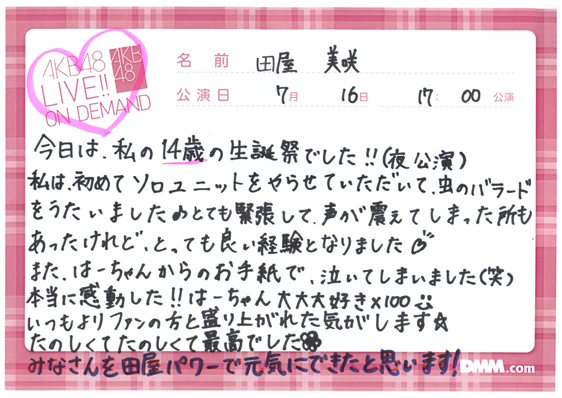 AKB48
LIVE!!
ON DEMAND
AKB
48
名前 田屋 美咲
公演日 7月 16日 17:00 公演
今日は、私の14歳の生誕祭でした!!(夜公演)
私は、初めてソロユニットをやらせていただいて、虫のバラード
をうたいましたとても緊張して、声が震えてしまった所も
あったけれど、とっても良い経験となりました
また、はーちゃんからのお手紙で、泣いてしまいました(笑)
本当に感動した!!はーちゃん大大大好き×100
いつもよりファンの方と盛り上がれた気がします☆
たのしくてたのしくて最高でした
みなさんを田屋パワーで元気にできたと思います!
DMM.com